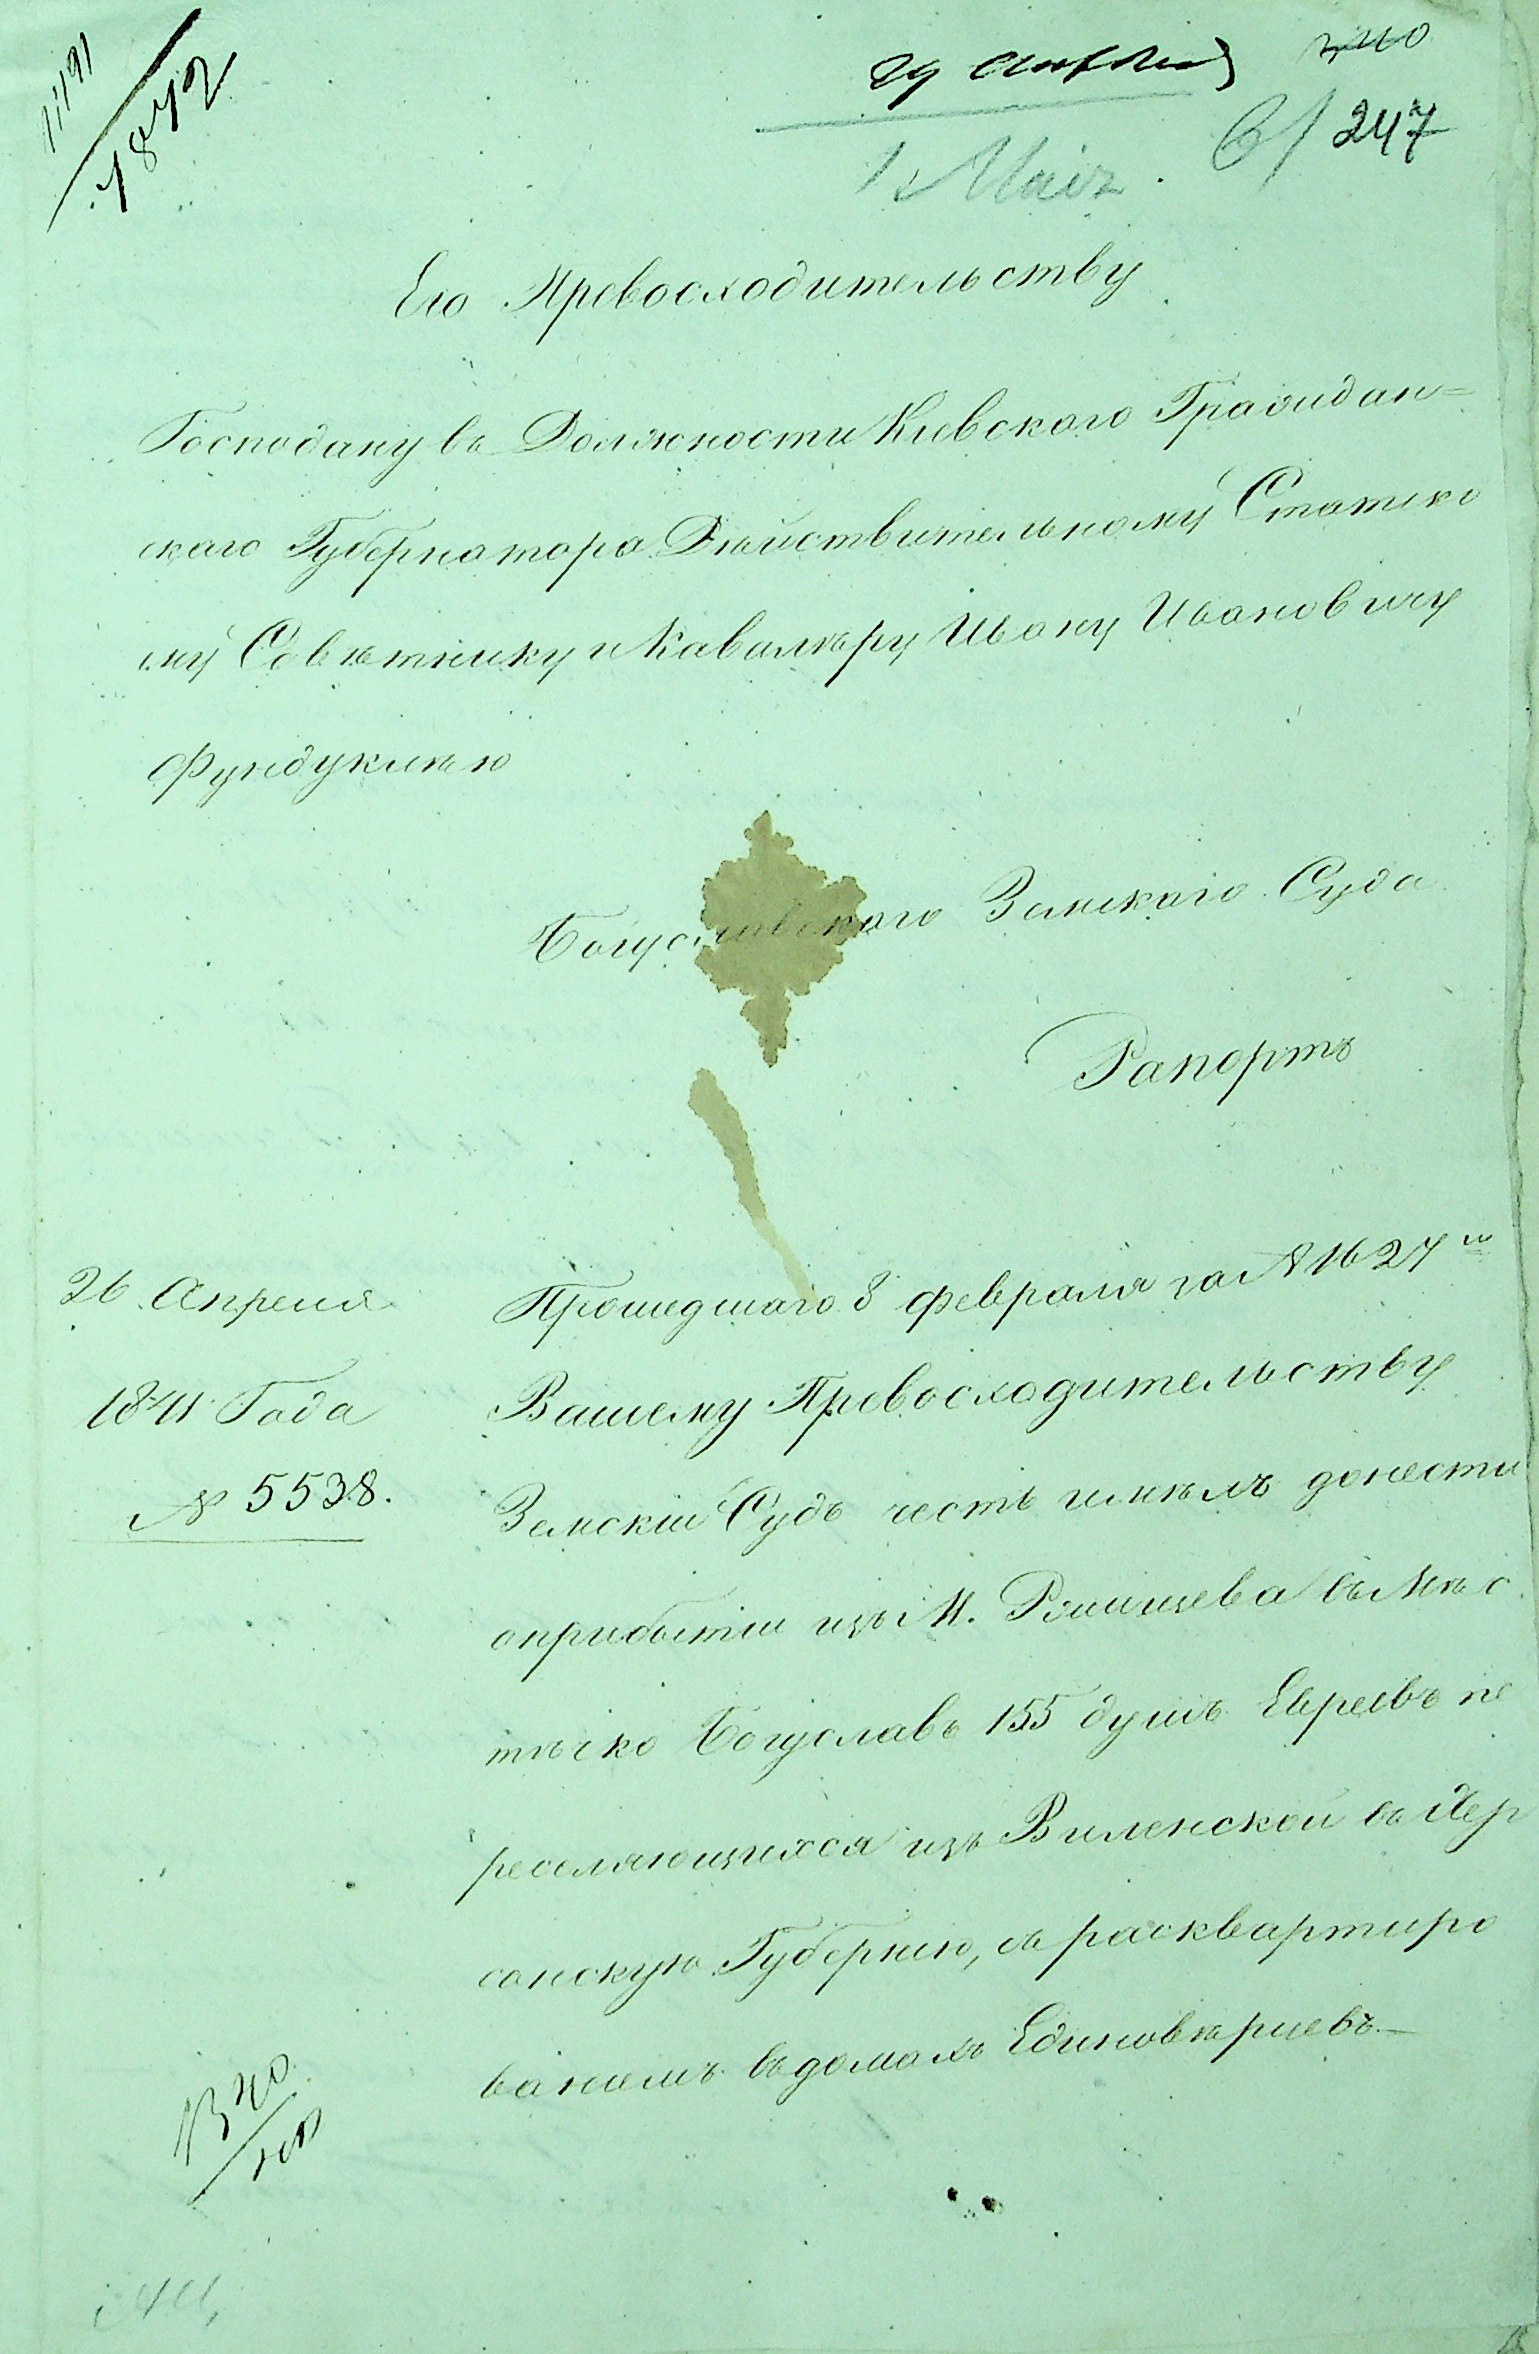 11191
1842
29 Апреля
240
247
1 Мая
Его Превосходительству
Господину въ Должности Кіевского Граждан=
скаго Губернатора Дѣйствительному Статско
му Совѣтнику и Кавалѣру Ивану Ивановичу
Фундуклѣю
Богуславского Земскаго Суда
Рапортъ
26 Апреля
1841 Года
№ 5538.
Прошедшаго 8 февраля за № 1627м
Вашему Превосходительству
Земскій Судъ честь имѣлъ донести
оприбытіи изъ М. Ржищева въ Мѣс
тѣчко Богуславъ 155 душъ Евреевъ пе
реселяющихся изъ Виленской въ Хер
сонскую Губернію, съ расквартиро
ваніемъ въ домахъ Единовѣрцевъ.—